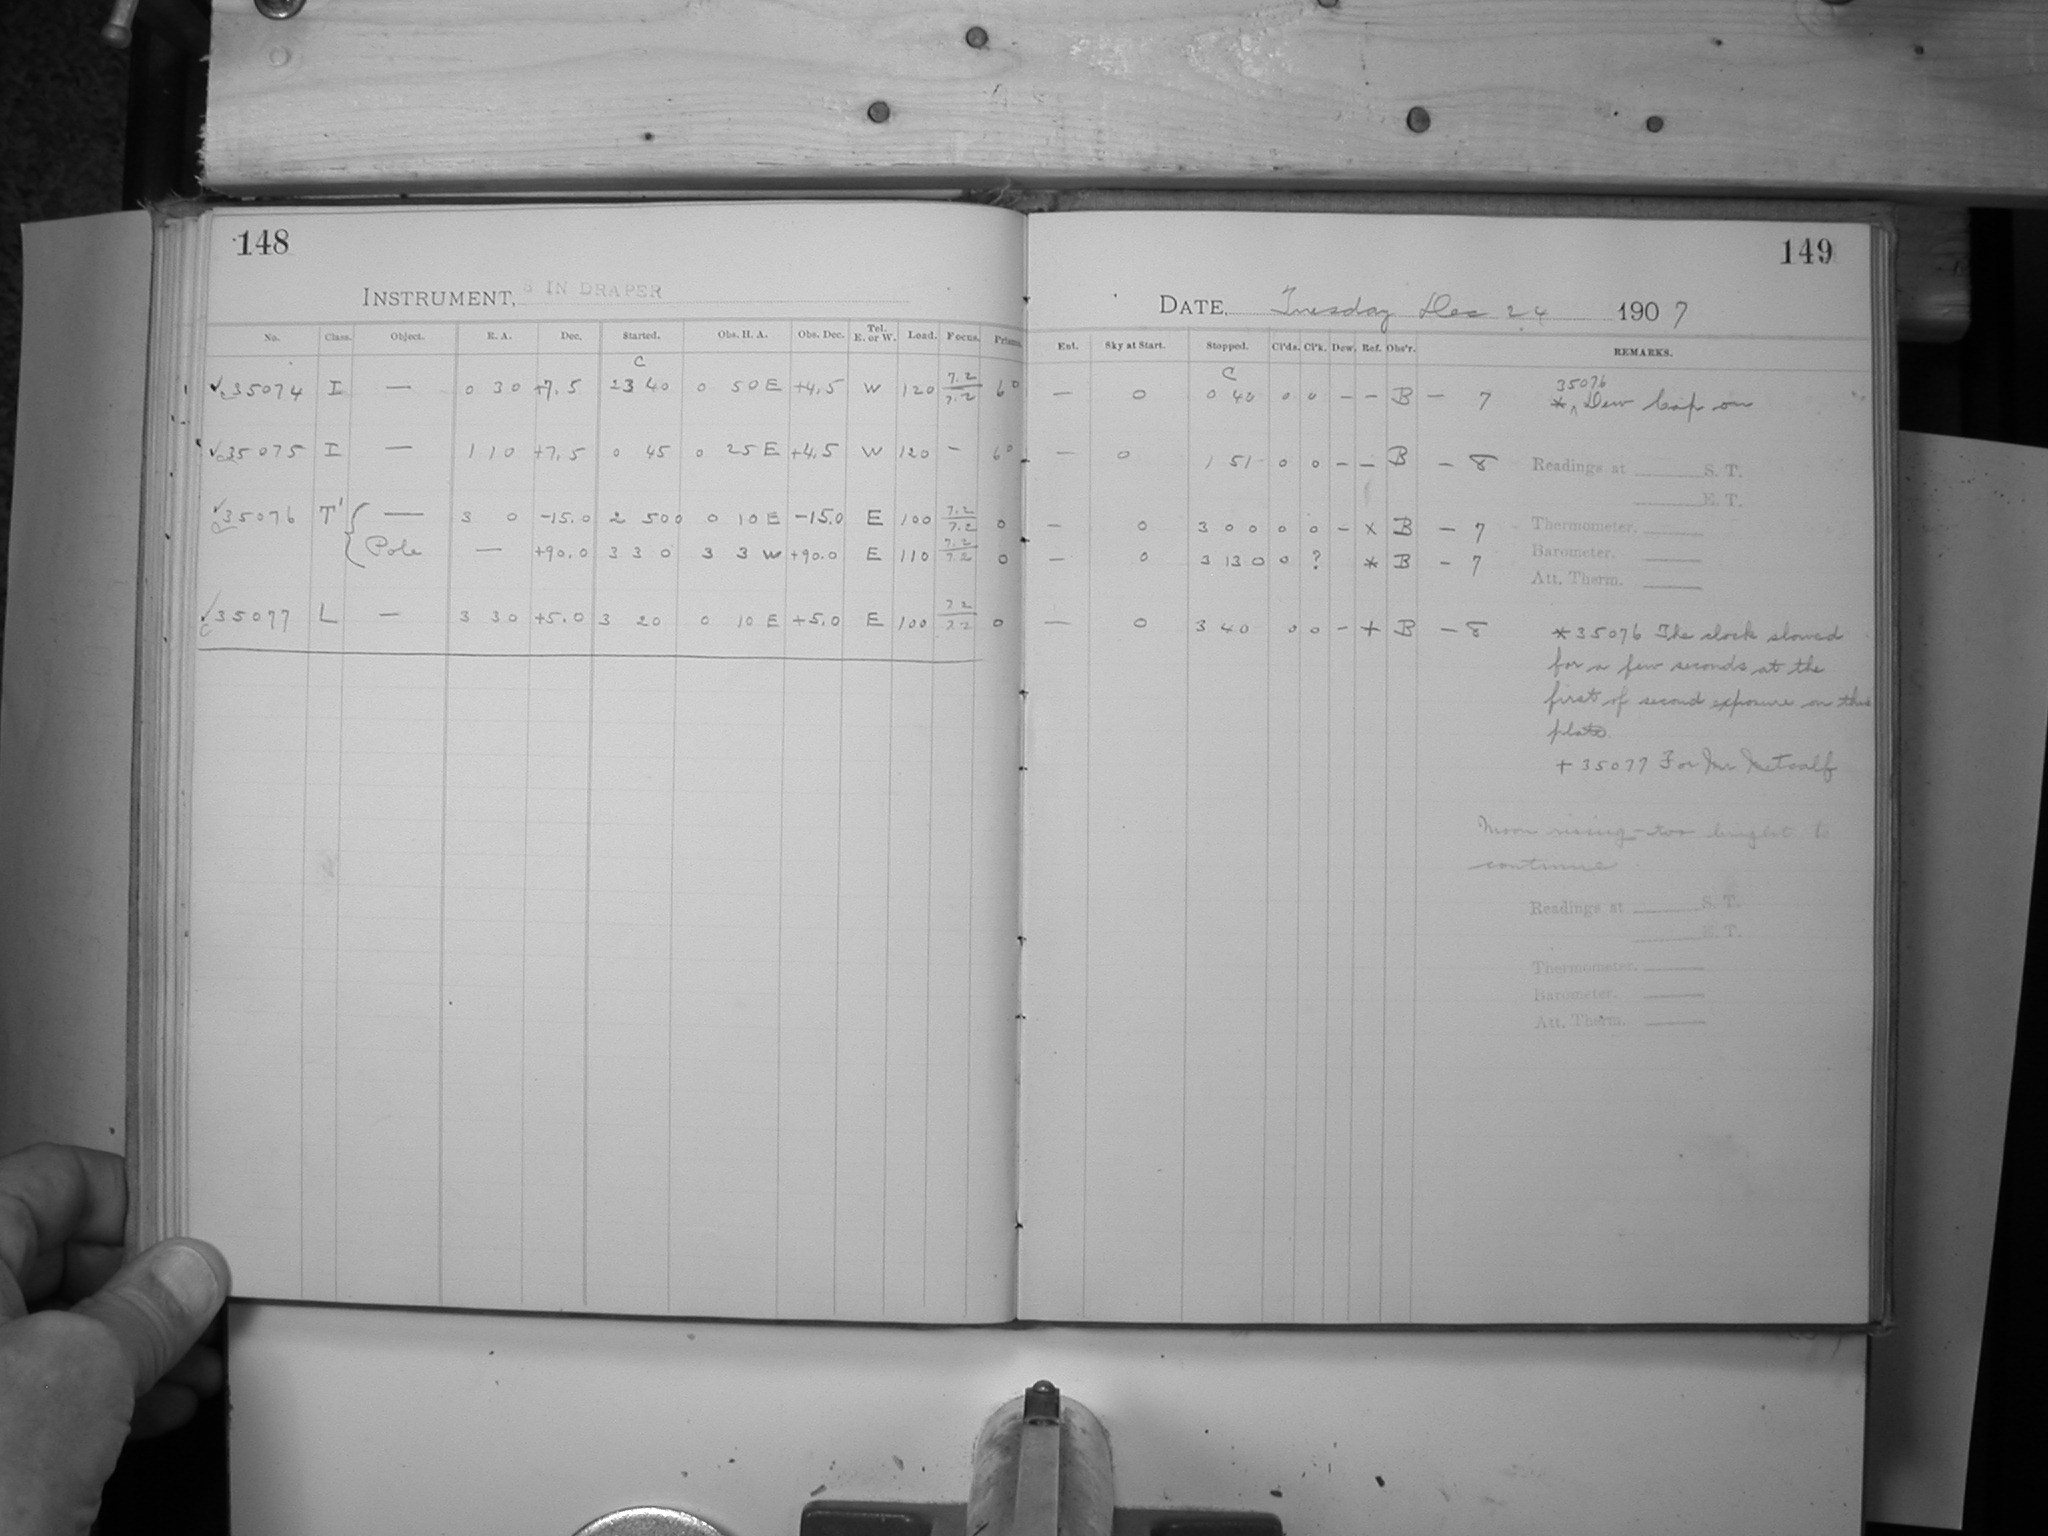 148
INSTRUMENT, 8 IN DRAPER
No. Class. Object. R. A. Dec. Started. Obs. H. A. Obs. Dec. Tel. E. or W. Load. Focus. Prisms.
C
35074 I — 0 30 +7.5 23 40 0 50 E +4.5 W 120 7.2/7.2 6°
35075 I — 1 10 +7.5 0 45 0 25 E +4.5 W 120 – 6°
35076 T' — 3 0 -15.0 2 50 0 0 10 E -15.0 E 100 7.2/7.2 0
Pole — +90.0 3 3 0 3 3 W +90.0 E 110 7.2/7.2 0
35077 L — 3 30 +5.0 3 20 0 10 E +5.0 E 100 7.2/7.2 0
149
DATE, Tuesday Dec 24 1907
Ent. Sky at Start. Stopped. Cl'ds. Cl'k. Dew. Ref. Obs'r. REMARKS.
C
— 0 0 40 0 0 – – B – 7
35076
* ^ Dew Cap on
— 0 1 51 0 0 – – B – 8
Readings at S. T.
E. T.
— 0 3 0 0 0 0 – x B – 7
Thermometer.
Barometer.
— 0 3 13 0 0 ? * B – 7
Att. Therm.
— 0 3 40 0 0 – + B – 8
* 35076 The clock slowed
for a few seconds at the
first of second exposure on this
plate
+ 35077 For Mr Metcalf
Moon rising – too bright to
continue
Readings at S. T.
E. T.
Thermometer.
Barometer.
Att. Therm.